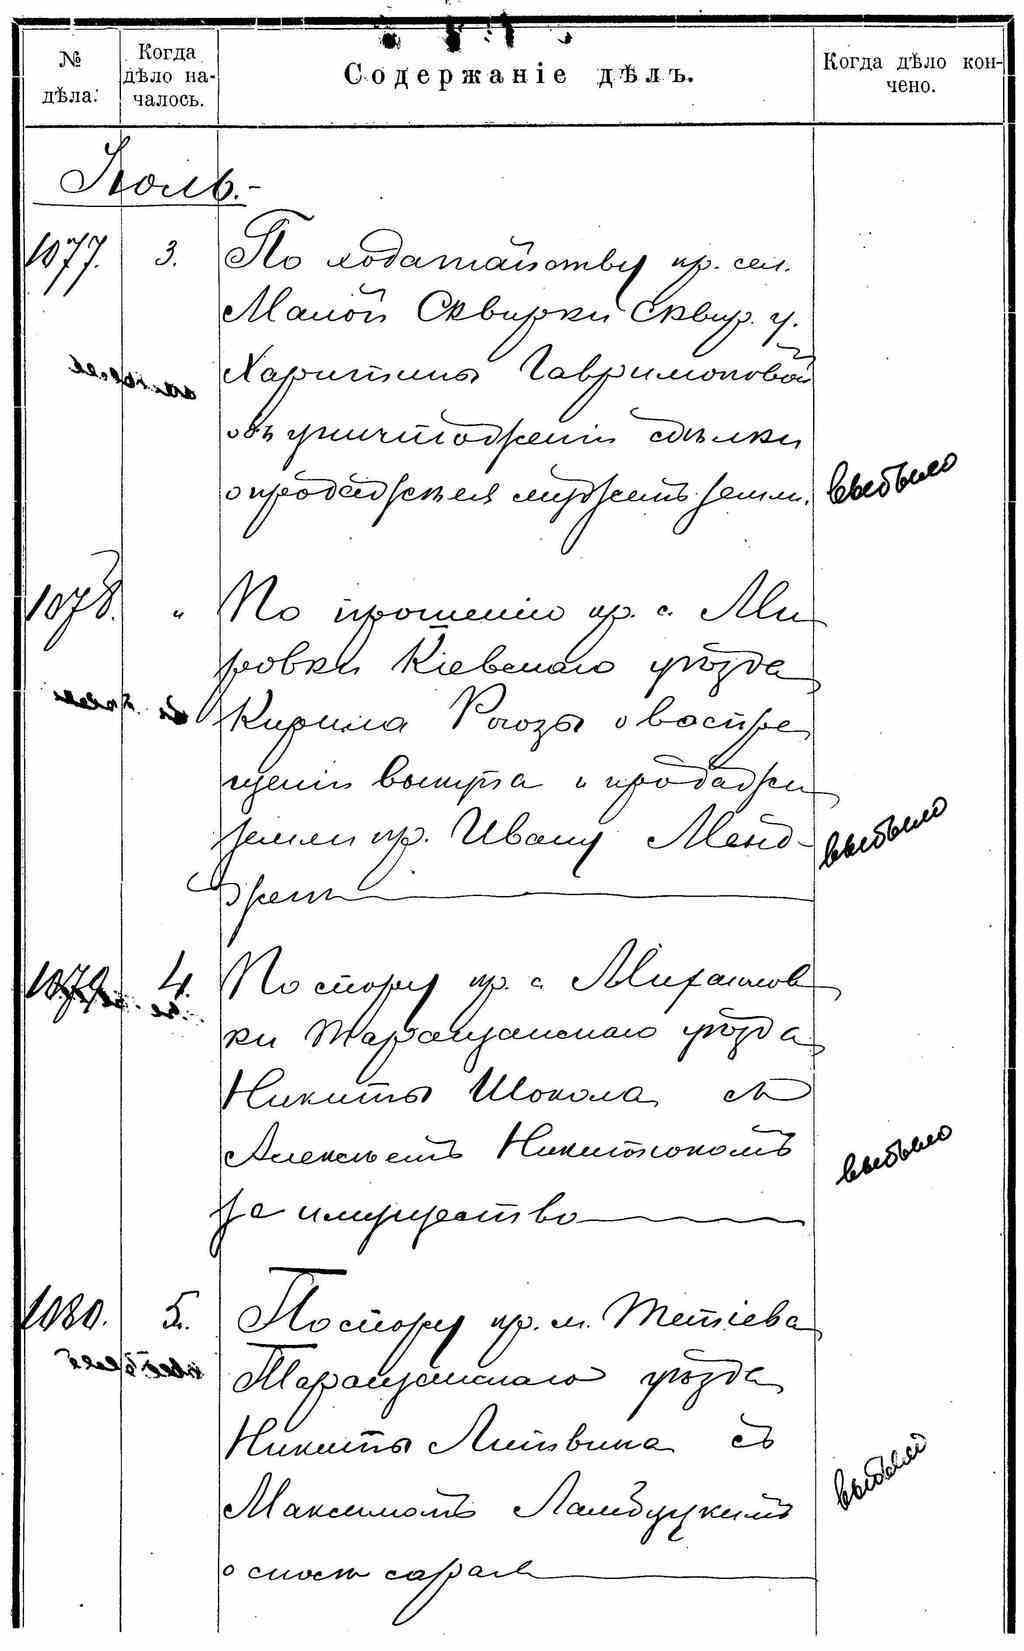 № дѣла.
Когда дѣло началось.
Содержаніе дѣлъ.
Когда дѣло кончено.
Іюль.-
1077. 3. По ходатайству кр. сел.
Малой Сквирки Сквир. у.
Харитины
объ уничтоженіи сдѣлки
о продажѣ ея мужемъ земли. выбыло
1078. " По прошенію кр. с. Ми
ровки Кіевскаго уѣзда
Кирила Рогозы о воспре
щеніи выкупа и продажи
земли кр. Ивану выбыло
1079 4. По спору кр. с. Михайлов
ки Таращанскаго уѣзда
Никиты Шокола съ
Алексѣемъ Никитюкомъ
за имущество выбыло
1080. 5. По спору кр. м. Тетіева
Таращанскаго уѣзда
Никиты Литвина съ
Максимомъ
о сносѣ сарая выбыло